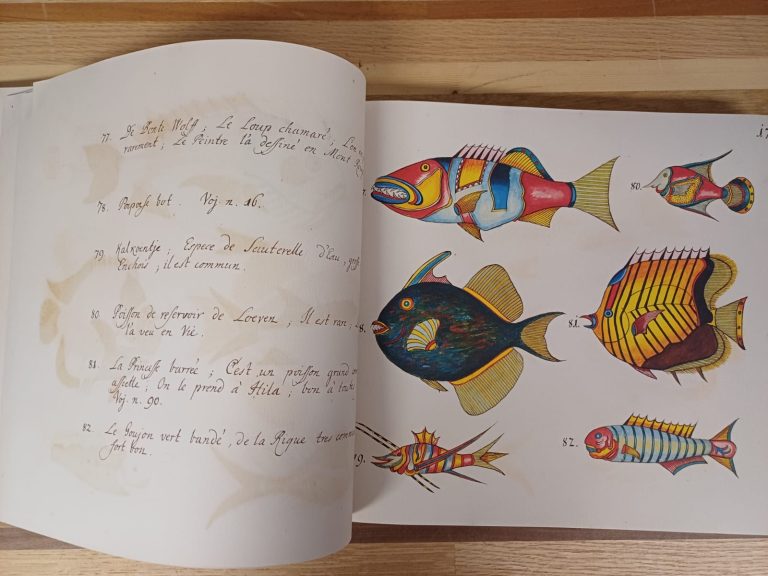 77. De Bonte Wolf ; Le Loup chamaré ; L'on
rarement ; Le Peintre l'a dessiné en Mont
78. Poupouse bot . Voj. n. 16.
79. Kalkoentje ; Espece de Sauterelle d'Eau,
Enchois ; il est commun.
80. Poisson de reservoir de Loeven ; Il est rare ;
l'a veu en Vie.
81. La Princesse barrée ; C'est un poisson grand
assiette ; On le prend à Hila ; bon à
Voj. n. 90.
82. Le Goujon vert bandé, de la Rique tres
fort bon.
17
80.
81.
79.
82.